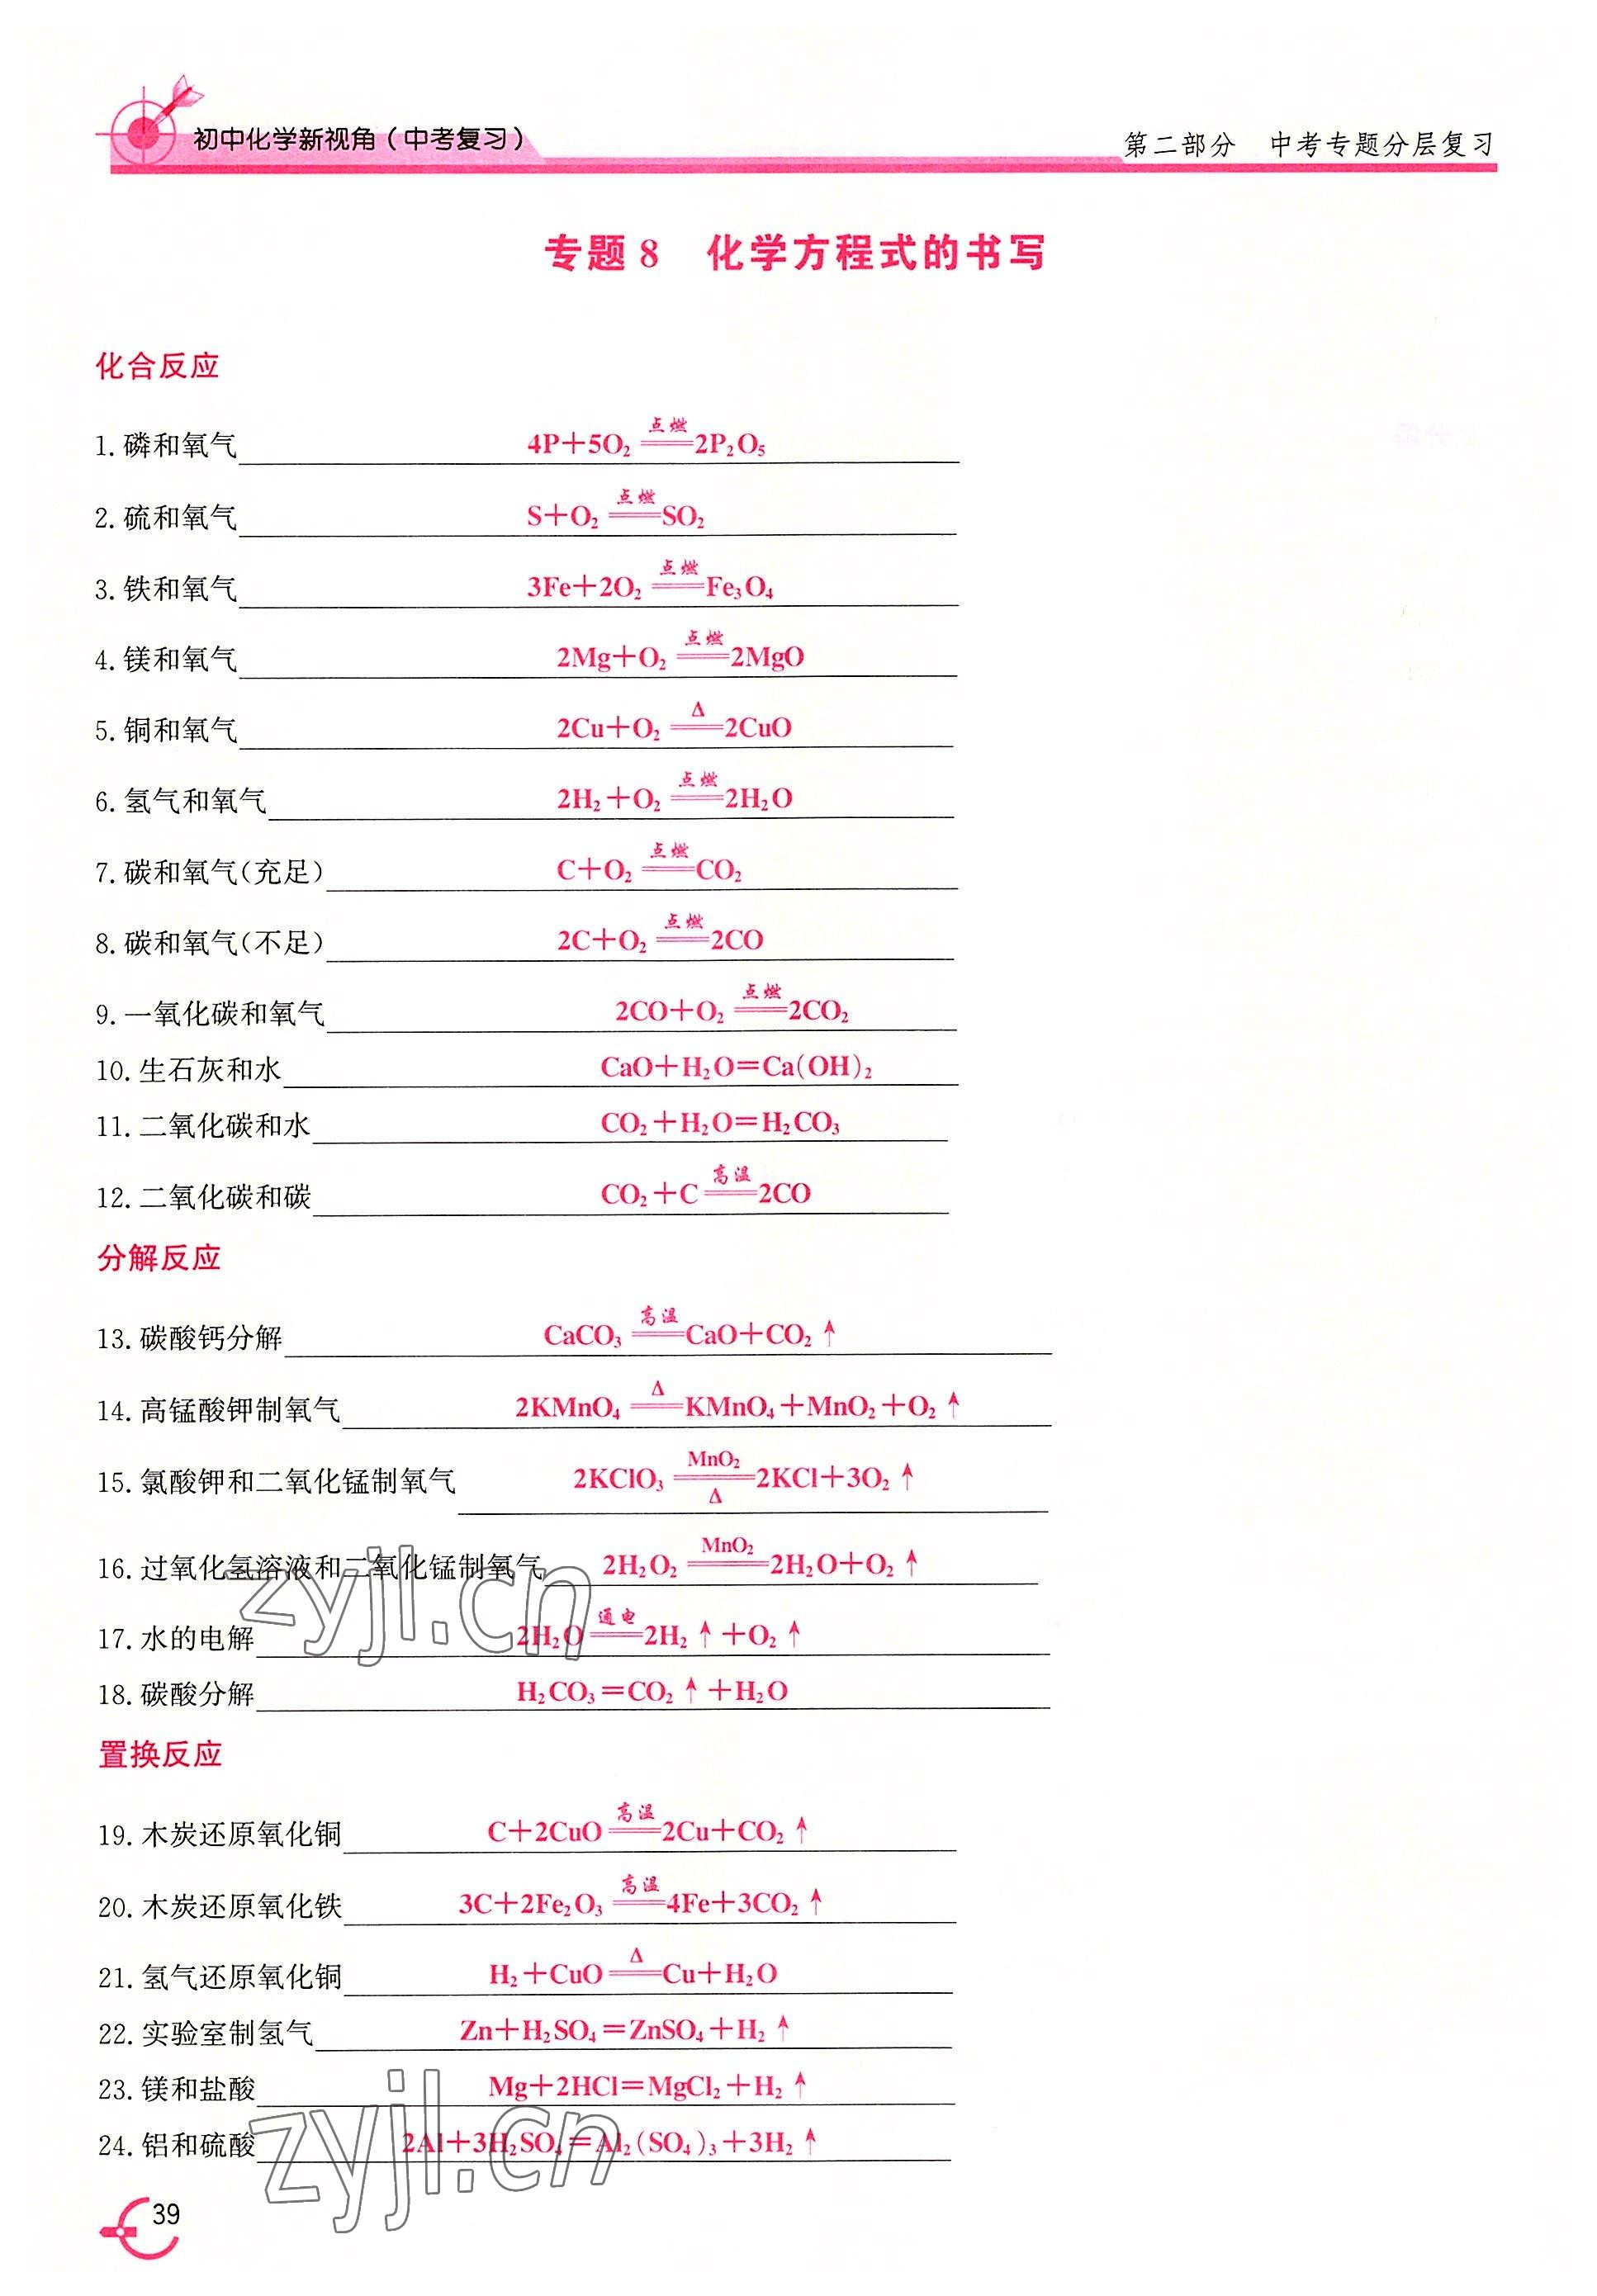 初中化学新视角(中考复习)
第二部分 中考专题分层复习
专题 8 化学方程式的书写
化合反应
1. 磷和氧气 4P+5O₂ 点燃══ 2P₂O₅
2. 硫和氧气 S+O₂ 点燃══ SO₂
3. 铁和氧气 3Fe+2O₂ 点燃══ Fe₃O₄
4. 镁和氧气 2Mg+O₂ 点燃══ 2MgO
5. 铜和氧气 2Cu+O₂ Δ══ 2CuO
6. 氢气和氧气 2H₂+O₂ 点燃══ 2H₂O
7. 碳和氧气(充足) C+O₂ 点燃══ CO₂
8. 碳和氧气(不足) 2C+O₂ 点燃══ 2CO
9. 一氧化碳和氧气 2CO+O₂ 点燃══ 2CO₂
10. 生石灰和水 CaO+H₂O=Ca(OH)₂
11. 二氧化碳和水 CO₂+H₂O=H₂CO₃
12. 二氧化碳和碳 CO₂+C 高温══ 2CO
分解反应
13. 碳酸钙分解 CaCO₃ 高温══ CaO+CO₂↑
14. 高锰酸钾制氧气 2KMnO₄ Δ══ KMnO₄+MnO₂+O₂↑
15. 氯酸钾和二氧化锰制氧气 2KClO₃ MnO₂══Δ 2KCl+3O₂↑
16. 过氧化氢溶液和二氧化锰制氧气 2H₂O₂ MnO₂══ 2H₂O+O₂↑
17. 水的电解 2H₂O 通电══ 2H₂↑+O₂↑
18. 碳酸分解 H₂CO₃=CO₂↑+H₂O
zyjl.cn
置换反应
19. 木炭还原氧化铜 C+2CuO 高温══ 2Cu+CO₂↑
20. 木炭还原氧化铁 3C+2Fe₂O₃ 高温══ 4Fe+3CO₂↑
21. 氢气还原氧化铜 H₂+CuO Δ══ Cu+H₂O
22. 实验室制氢气 Zn+H₂SO₄=ZnSO₄+H₂↑
23. 镁和盐酸 Mg+2HCl=MgCl₂+H₂↑
24. 铝和硫酸 2Al+3H₂SO₄=Al₂(SO₄)₃+3H₂↑
zyjl.cn
39